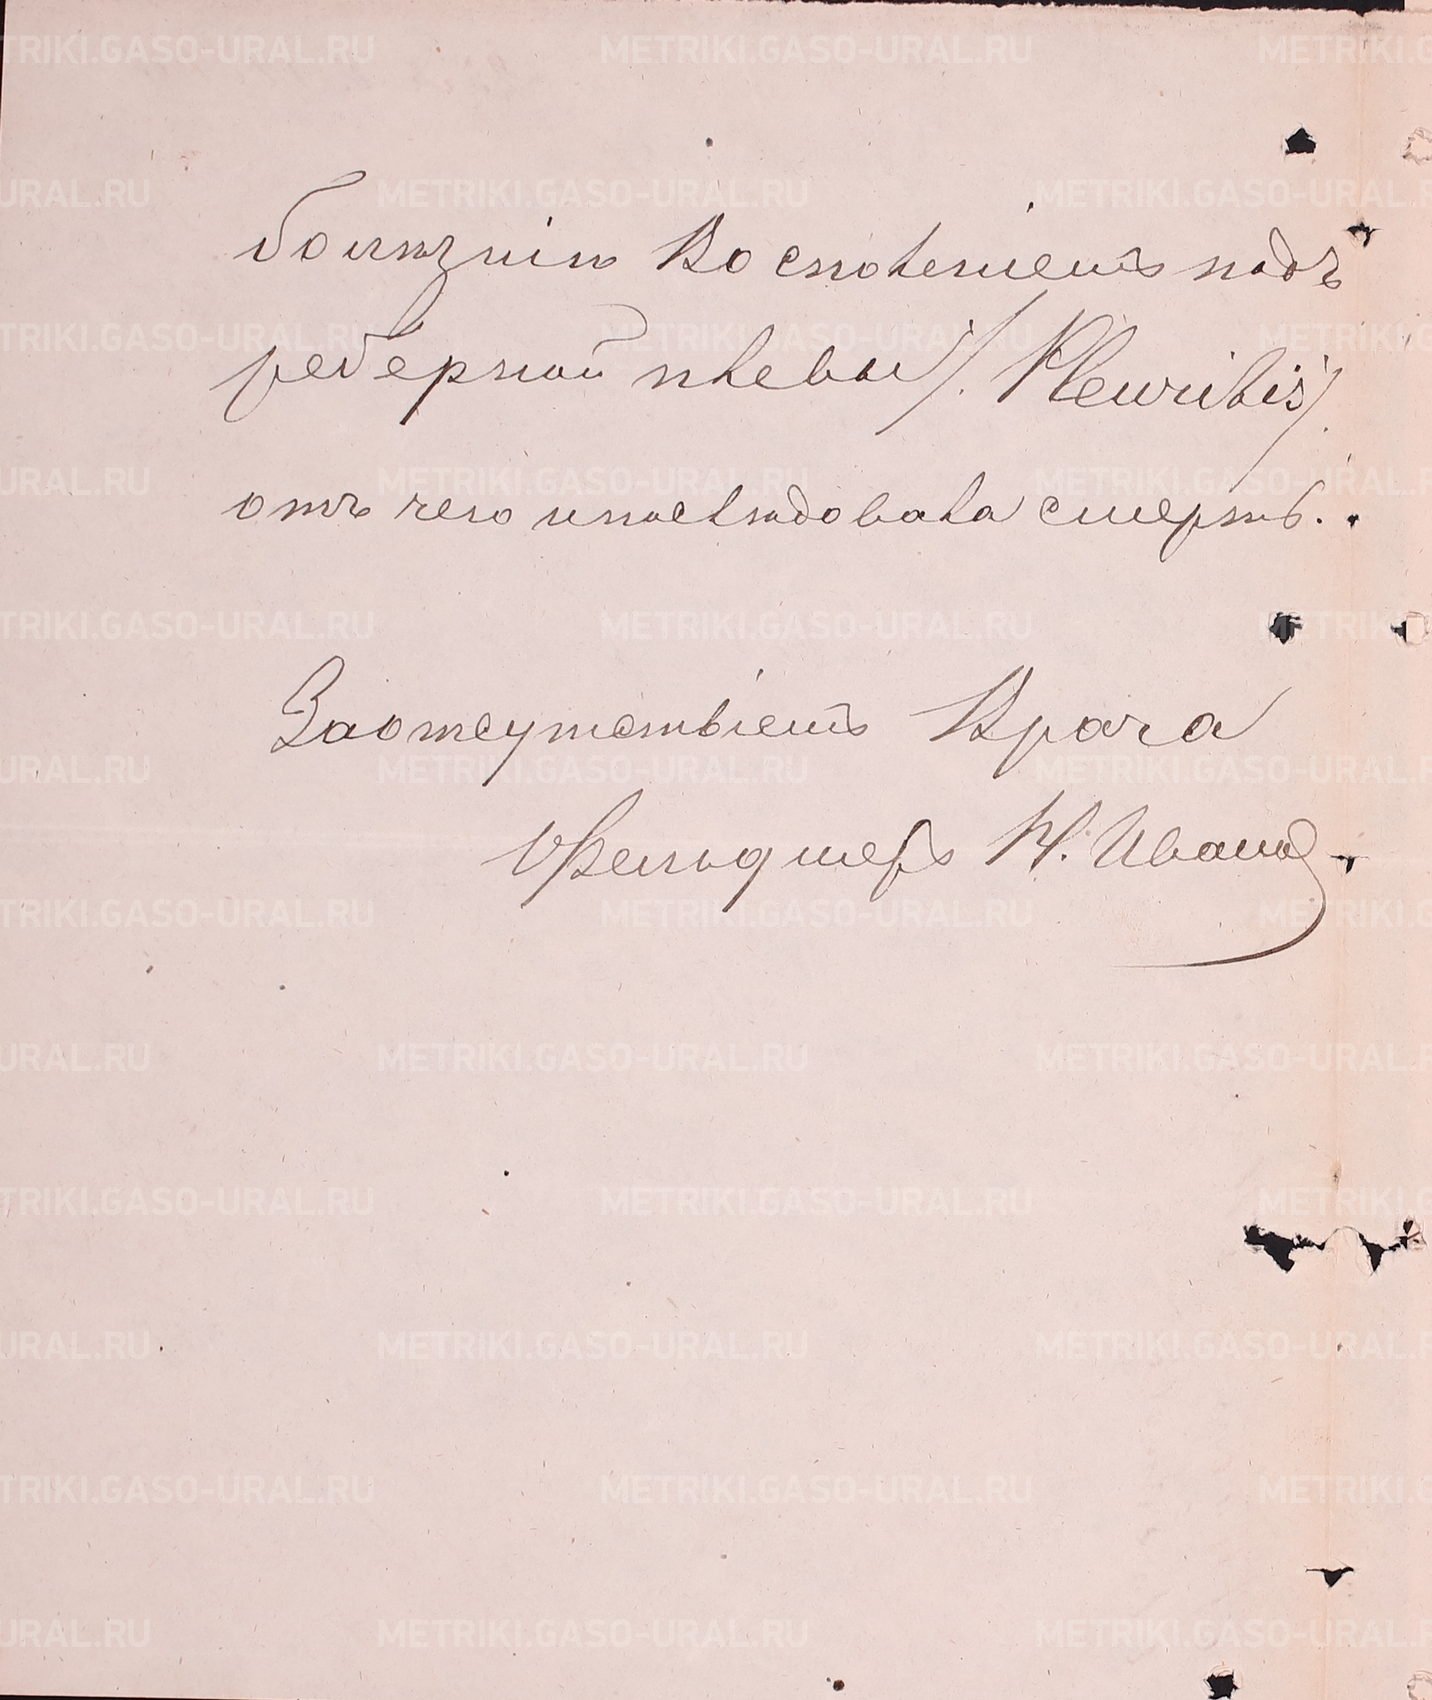 болѣзнію Восполеніемъ подъ
реберной плевы /. Pleuritis /.
отъ чего и последовала смерть.
Заотсутствіемъ Врача
Фельдшеръ Н. Иванов